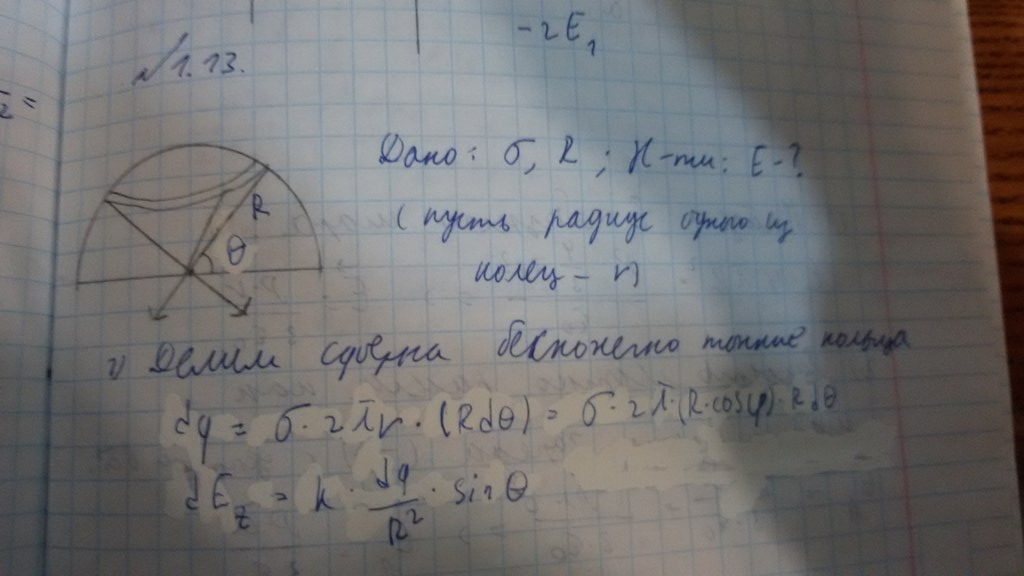 -2E₁
№1.13.
2 =
Дано: σ, R ; Н-ти: E-?
R
θ
( пусть радиус одного из
колец - r)
1) Делим сферу на бесконечно тонкие кольца
dq = σ·2πr·(Rdθ) = σ·2π·(R·cosφ)·Rdθ
dE_z = k · dq/R² · sinθ